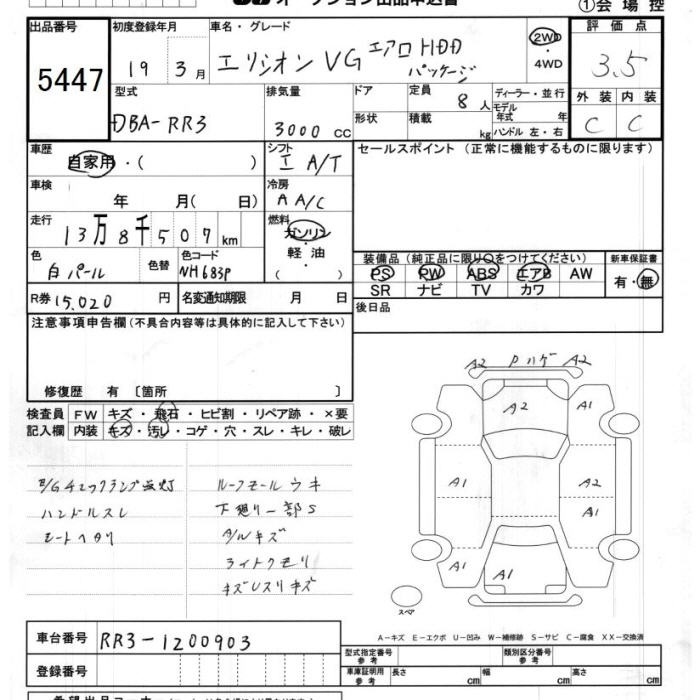 オークション出品申込書
①会場控
出品番号 初度登録年月 車名・グレード 評価点
5447 19 3月 エリシオン VG エアロHDDパッケージ 2WD・4WD 3.5
型式 排気量 ドア 定員 ディーラー・並行 外装 内装
DBA-RR3 3000cc 8人 モデル年式 年 C C
形状 積載 kg ハンドル 左・右
車歴 シフト セールスポイント (正常に機能するものに限ります)
自家用・( ) I A/T
車検 冷房
年 月( 日) A A/C
走行 燃料
13万8千507km ガソリン・軽油・
色 色替 色コード 装備品(純正品に限り○をつけてください) 新車保証書
白パール NH683P PS PW ABS エアB AW 有・無
SR ナビ TV カワ
R券 15,020円 名変通知期限 月 日 後日品
注意事項申告欄(不具合内容等は具体的に記入して下さい)
修復歴 有 〔箇所 〕
検査員 FW キズ・飛石・ヒビ割・リペア跡・×要
記入欄 内装 キズ・汚レ・コゲ・穴・スレ・キレ・破レ
E/Gチェックランプ点灯
ハンドルスレ
シートヘタリ
ルーフモールウキ
下廻り一部S
A/Wキズ
ライトクモリ
キズUスリキズ
A2 Pハゲ A2
A2 A1
A1 A2
A1
A1 A1
スペア
A-キズ E-エクボ U-凹み W-補修跡 S-サビ C-腐食 XX-交換済
車台番号 RR3-1200903
登録番号
型式指定番号 参考 類別区分番号 参考
車庫証明用 参考 長さ cm 幅 cm 高さ cm